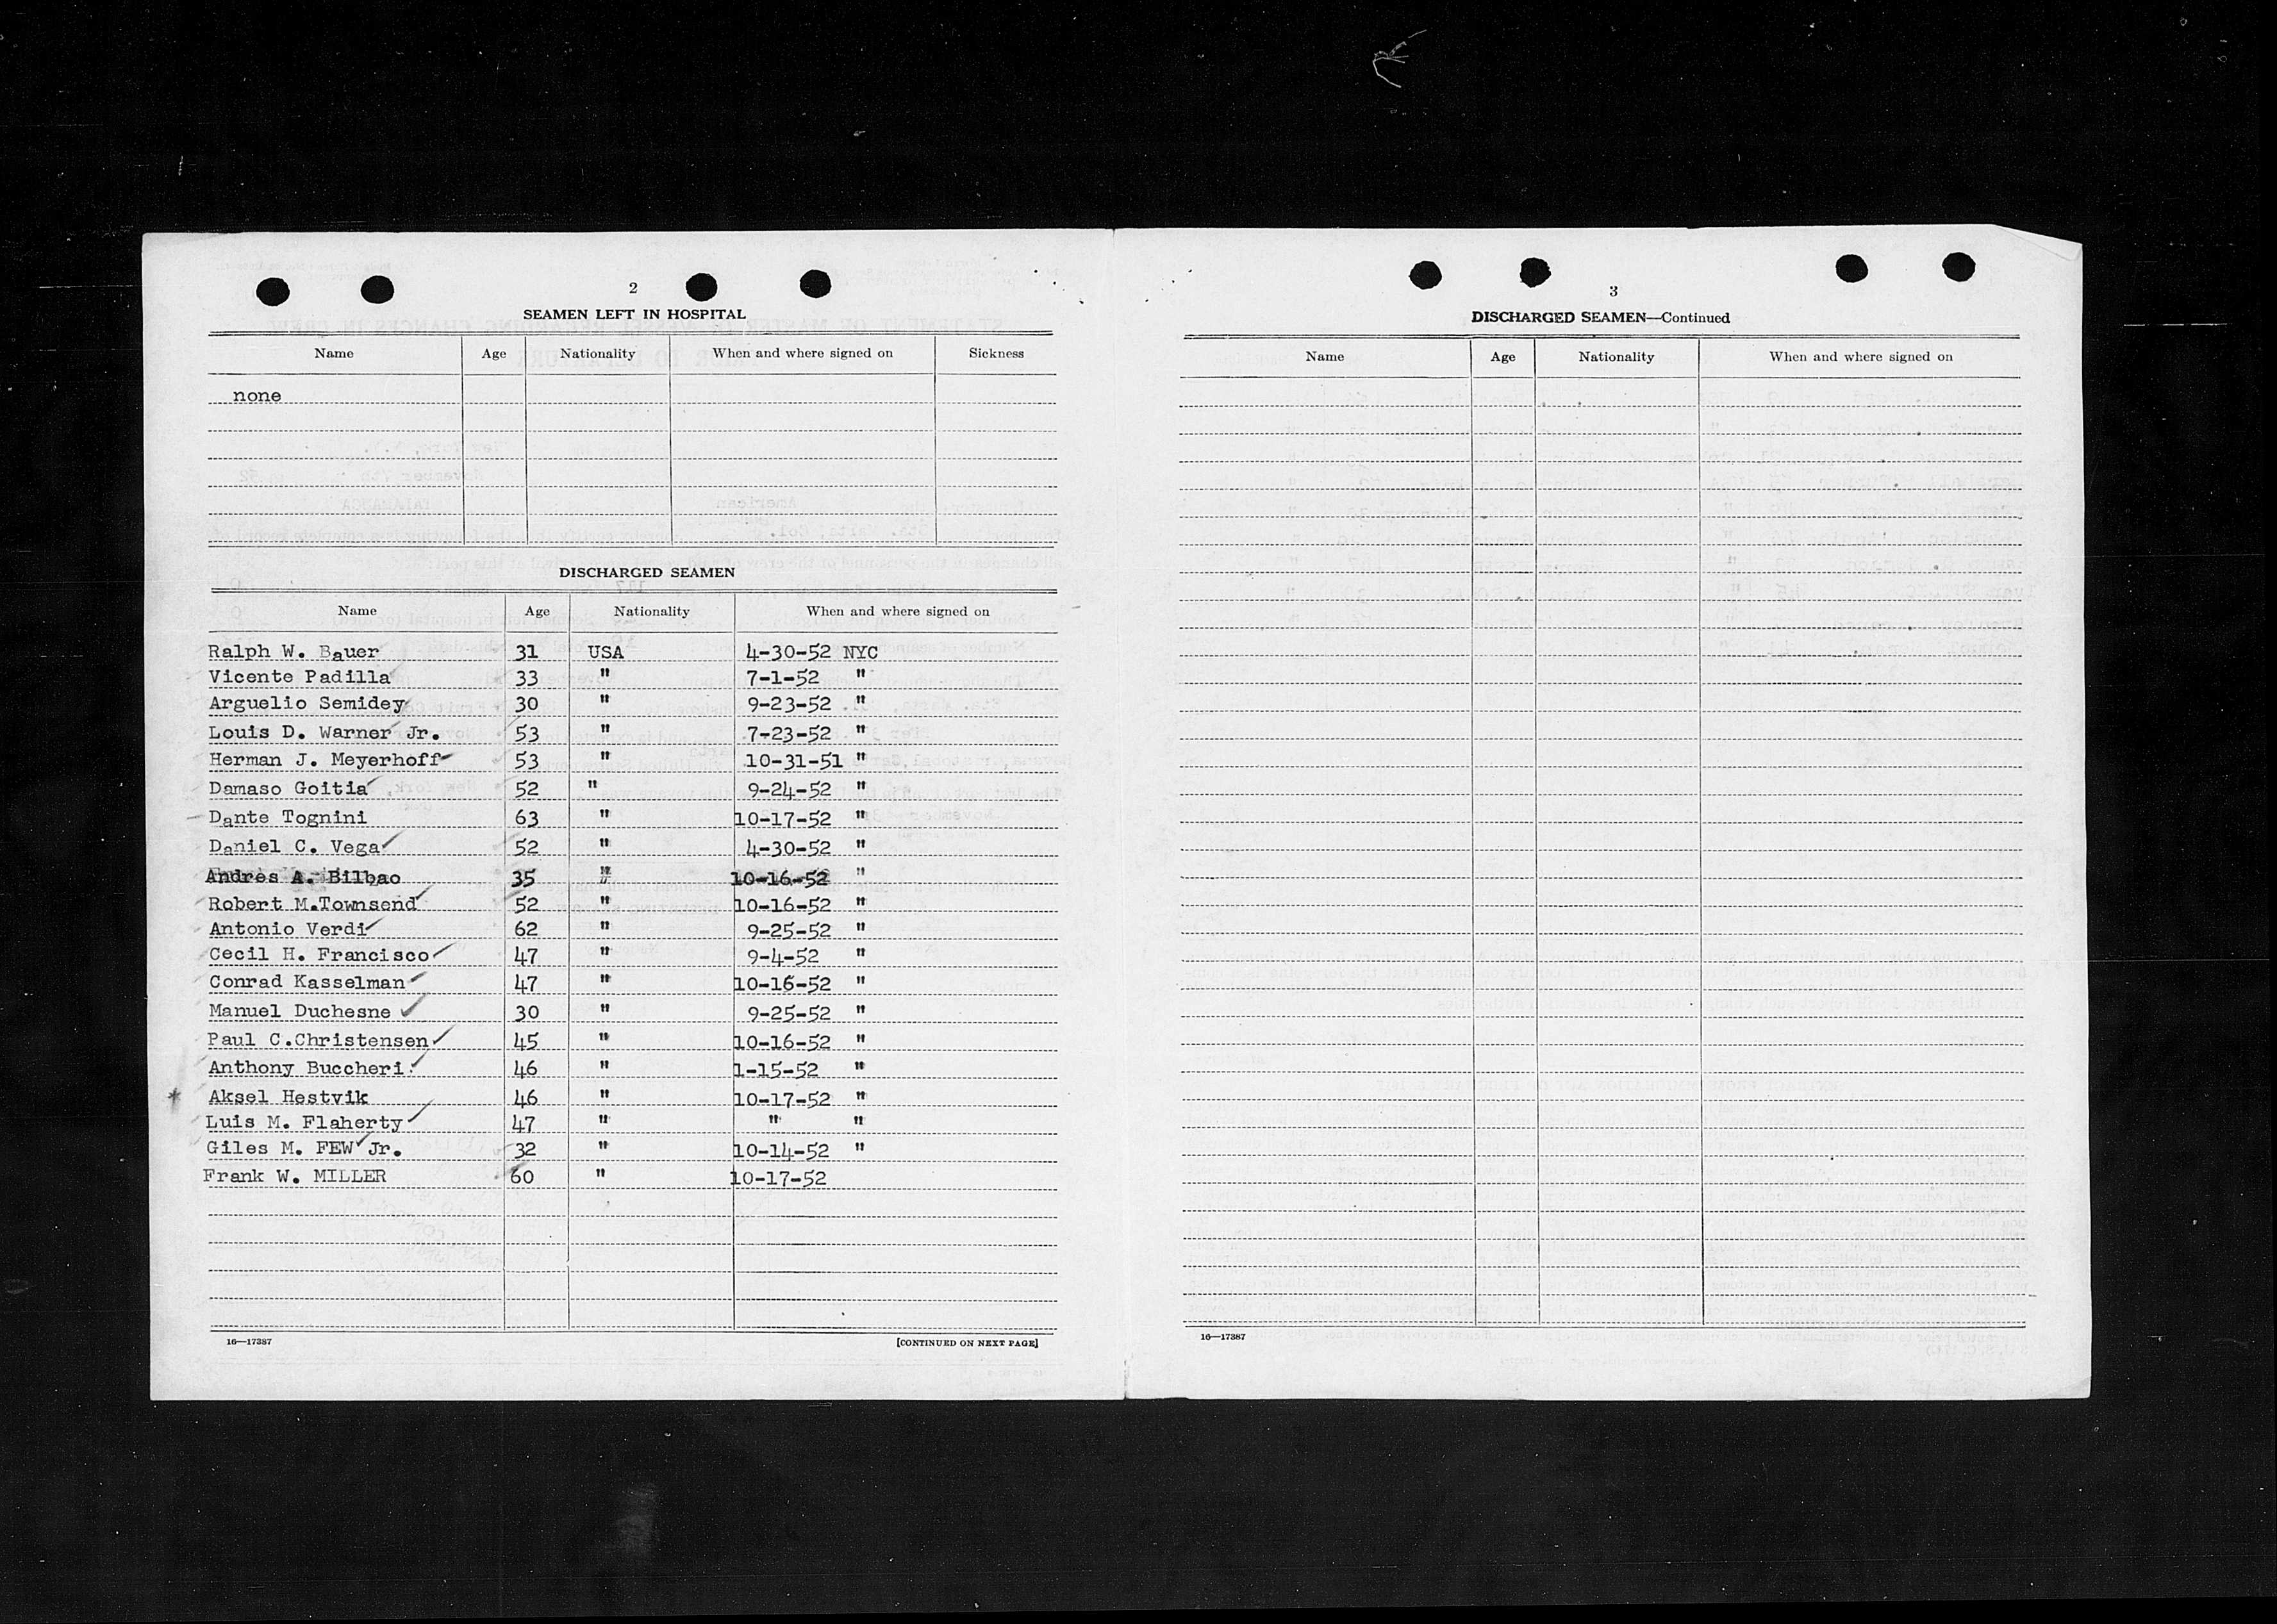 2
SEAMEN LEFT IN HOSPITAL
Name Age Nationality When and where signed on Sickness
none
DISCHARGED SEAMEN
Name Age Nationality When and where signed on
Ralph W. Bauer 31 USA 4-30-52 NYC
Vicente Padilla 33 " 7-1-52 "
Arguelio Semidey 30 " 9-23-52 "
Louis D. Warner Jr. 53 " 7-23-52 "
Herman J. Meyerhoff 53 " 10-31-51 "
Damaso Goitia 52 " 9-24-52 "
Dante Tognini 63 " 10-17-52 "
Daniel C. Vega 52 " 4-30-52 "
Andres A. Bilbao 35 " 10-16-52 "
Robert M.Townsend 52 " 10-16-52 "
Antonio Verdi 62 " 9-25-52 "
Cecil H. Francisco 47 " 9-4-52 "
Conrad Kasselman 47 " 10-16-52 "
Manuel Duchesne 30 " 9-25-52 "
Paul C.Christensen 45 " 10-16-52 "
Anthony Buccheri 46 " 1-15-52 "
Aksel Hestvik 46 " 10-17-52 "
Luis M. Flaherty 47 " " "
Giles M. FEW Jr. 32 " 10-14-52 "
Frank W. MILLER 60 " 10-17-52
16—17387 [CONTINUED ON NEXT PAGE]
3
DISCHARGED SEAMEN—Continued
Name Age Nationality When and where signed on
16—17387